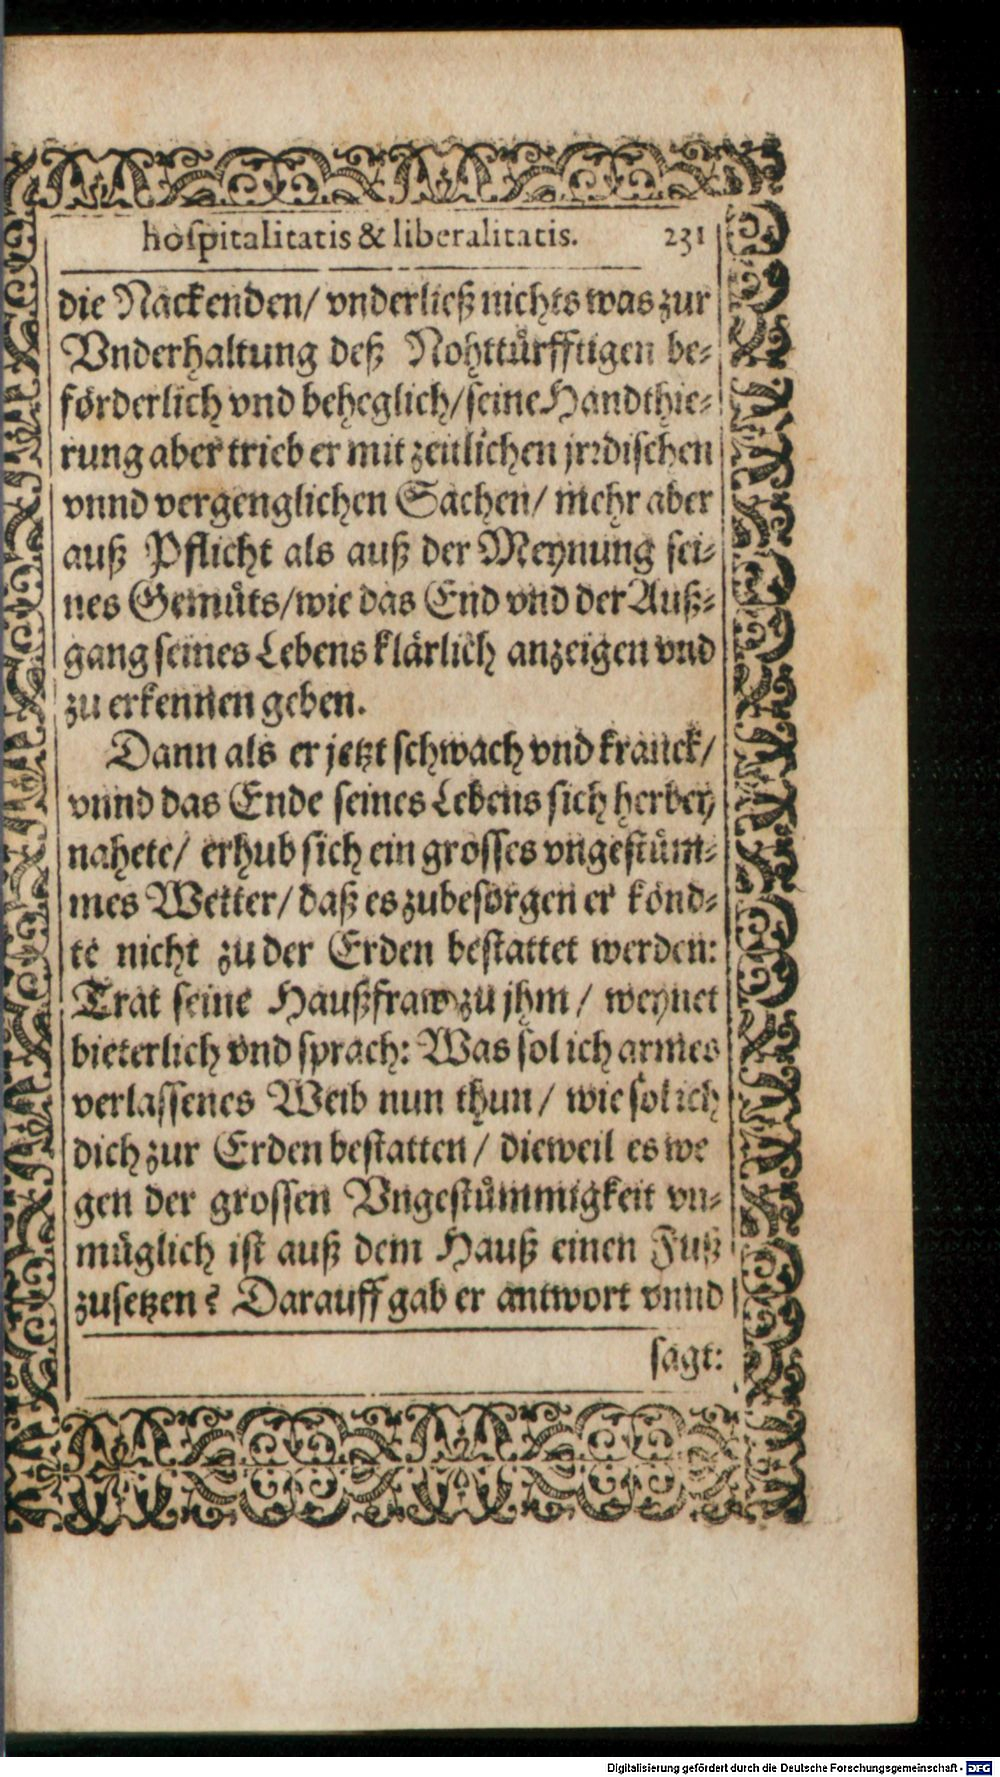 hoſpitalitatis & liberalitatis. 231
die Nackenden/ vnderließ nichts was zur
Vnderhaltung deß Nohttürfftigen be⸗
förderlich vnd beheglich/ ſeine Handthie⸗
rung aber trieb er mit zeitlichen jrꝛdiſchen
vnnd vergenglichen Sachen/ mehr aber
auß Pflicht als auß der Meynung ſei⸗
nes Gemüts/ wie das End vnd der Auß⸗
gang ſeines Lebens klärlich anzeigen vnd
zu erkennen geben.
Dann als er jetzt ſchwach vnd kranck/
vnnd das Ende ſeines Lebens ſich herbey
nahete/ erhub ſich ein groſſes vngeſtüm⸗
mes Wetter/ daß es zubeſorgen er könd⸗
te nicht zu der Erden beſtattet werden:
Trat ſeine Haußfraw zu jhm/ weynet
bieterlich vnd ſprach: Was ſol ich armes
verlaſſenes Weib nun thun/ wie ſol ich
dich zur Erden beſtatten/ dieweil es we
gen der groſſen Vngeſtümmigkeit vn⸗
müglich iſt auß dem Hauß einen Fuß
zuſetzen? Darauff gab er antwort vnnd
ſagt:
Digitalisierung gefördert durch die Deutsche Forschungsgemeinschaft - DFG